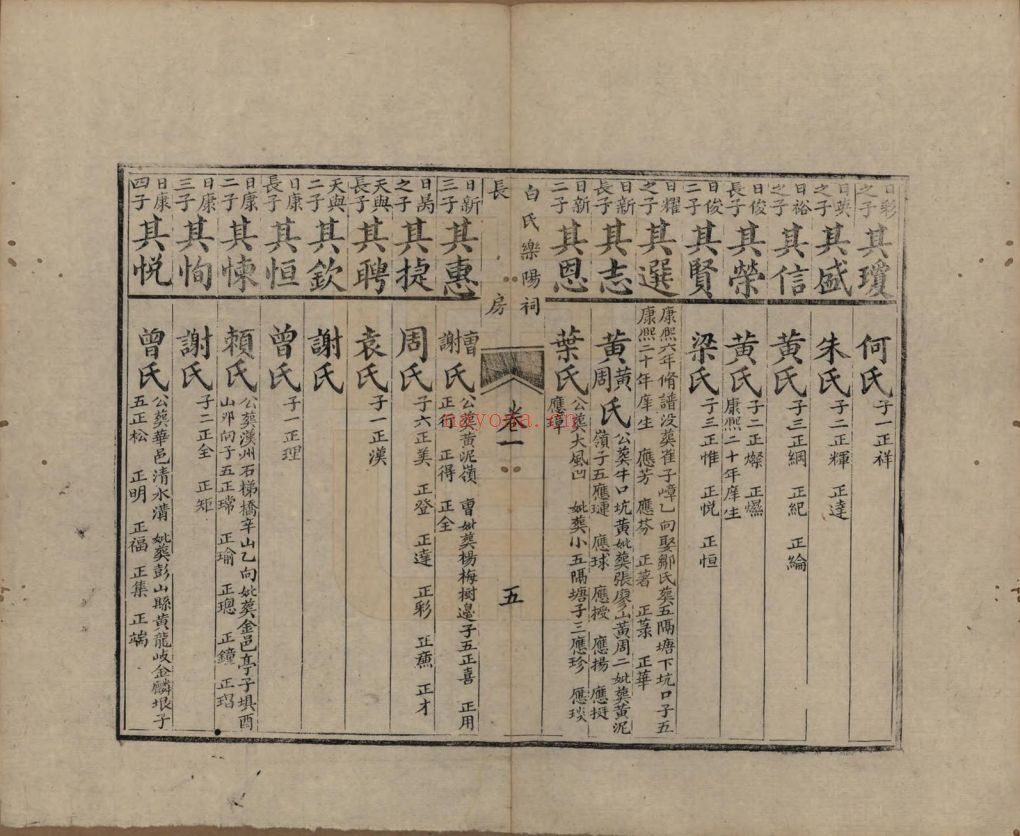 日彩之子 其瓊 何氏 子一正祥
日英之子 其盛 朱氏 子二正輝 正達
日裕之子 其信 黃氏 子三正綱 正紀 正綸
日俊長子 其榮 黃氏 子二正燦 正燨 康熙二十年庠生
日俊二子 其賢 梁氏 子三正惟 正悦 正恒
日耀之子 其選 康熙六年脩譜没葬雀子嶂乙向娶鄒氏葬五隔塘下坑口子五 康熙二十年庠生 應芳 應芬 正著 正菉 正華
日新長子 其志 黃黃周氏 公葬牛口坑黃妣葬張廖山黃周二妣葬黃泥嶺子五應璉 應球 應授 應揚 應挺
日新二子 其恩 葉氏 公葬大風凹 妣葬小五隔塘子三應珍 應琰 應璋
白氏樂陽祠
長房
卷一
五
日新三子 其惠 曹謝氏 公葬黃泥嶺 曹妣葬楊梅樹邊子五正喜 正用 正行 正得 正全
日禼之子 其捷 周氏 子六正美 正登 正達 正彩 正薰 正才
天與長子 其聘 袁氏 子一正漢
天與二子 其欽 謝氏
日康長子 其恒 曾氏 子一正理
日康二子 其悚 賴氏 公葬漢洲石梯橋辛山乙向妣葬金邑亭子埧酉山卯向子五正瑺 正瑜 正璁 正鐘 正瑁
日康三子 其恂 謝氏 子二正全 正矩
日康四子 其悦 曾氏 公葬華邑清水溝 妣葬彭山縣黃龍岐金麟垠子五正松 正明 正福 正集 正端
nayona.cn